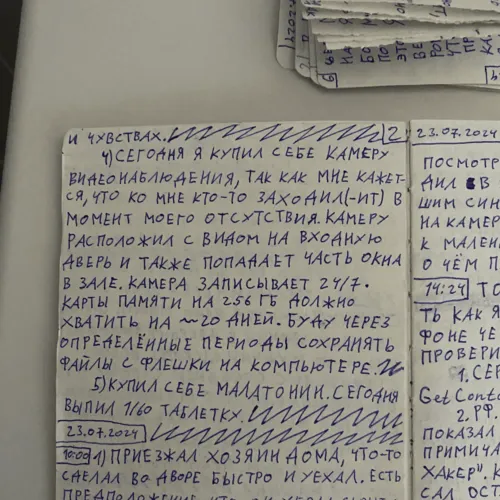 И ЧУВСТВАХ. 2
4) СЕГОДНЯ Я КУПИЛ СЕБЕ КАМЕРУ
ВИДЕОНАБЛЮДЕНИЯ, ТАК КАК МНЕ КАЖЕТ-
СЯ, ЧТО КО МНЕ КТО-ТО ЗАХОДИЛ(-ИТ) В
МОМЕНТ МОЕГО ОТСУТСТВИЯ. КАМЕРУ
РАСПОЛОЖИЛ С ВИДОМ НА ВХОДНУЮ
ДВЕРЬ И ТАКЖЕ ПОПАДАЕТ ЧАСТЬ ОКНА
В ЗАЛЕ. КАМЕРА ЗАПИСЫВАЕТ 24/7.
КАРТЫ ПАМЯТИ НА 256 ГБ ДОЛЖНО
ХВАТИТЬ НА ~20 ДНЕЙ. БУДУ ЧЕРЕЗ
ОПРЕДЕЛЁННЫЕ ПЕРИОДЫ СОХРАНЯТЬ
ФАЙЛЫ С ФЛЕШКИ НА КОМПЬЮТЕРЕ.
5) КУПИЛ СЕБЕ МАЛАТОНИН. СЕГОДНЯ
ВЫПИЛ 1/60 ТАБЛЕТКУ.
23.07.2024
10:00 1) ПРИЕЗЖАЛ ХОЗЯИН ДОМА, ЧТО-ТО
СДЕЛАЛ ВО ДВОРЕ БЫСТРО И УЕХАЛ. ЕСТЬ
23.07.2024
ПОСМОТР
ДИЛ В
ШИМ СИН
НА КАМЕР
К МАЛЕН
О ЧЁМ П
14:24 ТО
ТЬ КАК Я
ФОНЕ ЧЕ
ПРОВЕРИ
1. СЕР
GetConta
2. РФ.
ПОКАЗАЛ
ПРИМИЧА
ХАКЕР". К
САЛ ОСТ